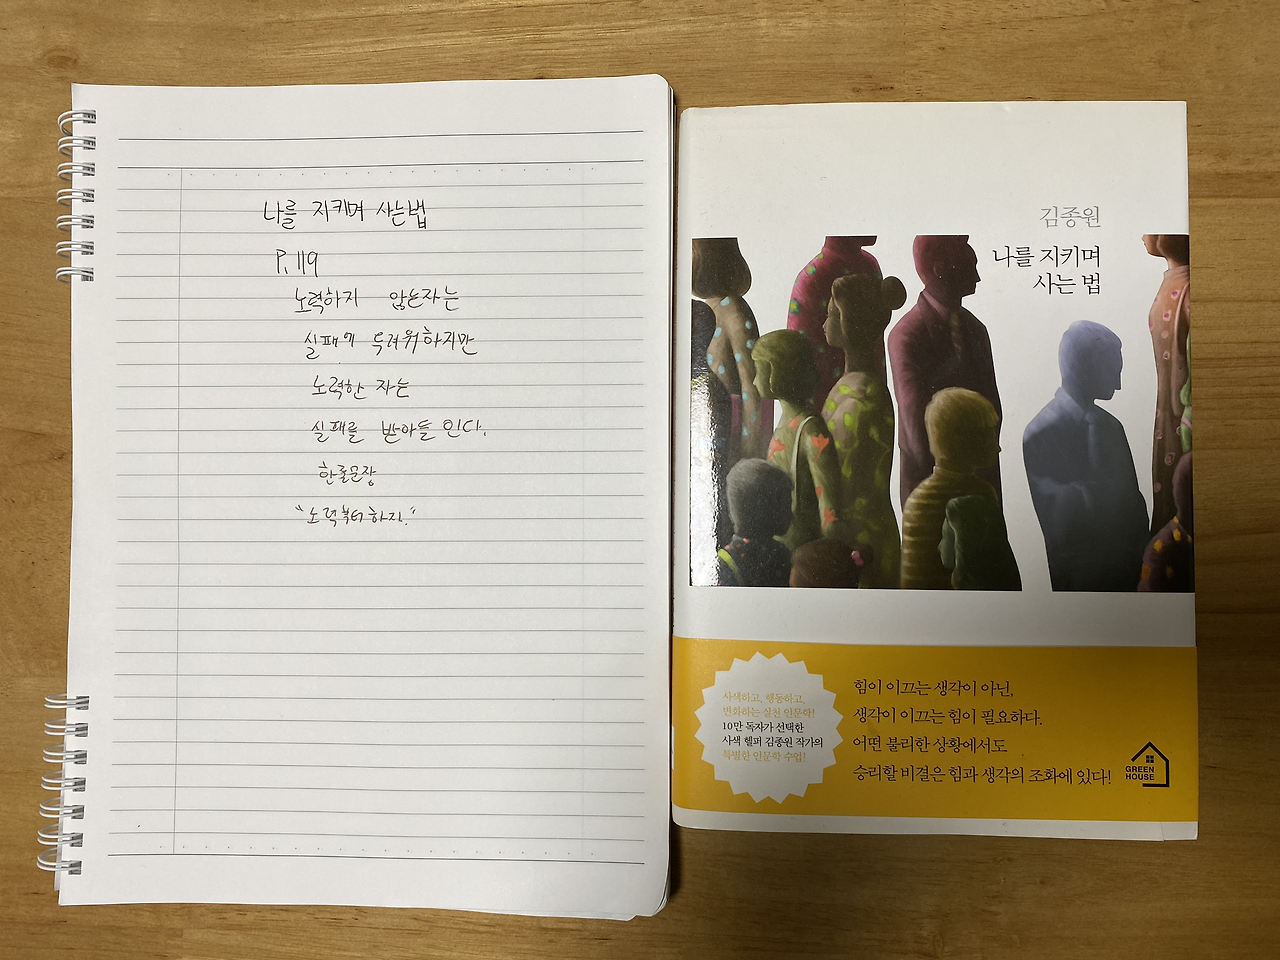 나를 지키며 사는법
P.119
노력하지 않은자는
실패에 두려워하지만
노력한 자는
실패를 받아들인다.
한줄문장
"노력부터하자."
김종원
나를 지키며
사는 법
사색하고, 행동하고,
변화하는 실천 인문학!
10만 독자가 선택한
사색 헬퍼 김종원 작가의
특별한 인문학 수업!
힘이 이끄는 생각이 아닌,
생각이 이끄는 힘이 필요하다.
어떤 불리한 상황에서도
승리할 비결은 힘과 생각의 조화에 있다!
GREEN
HOUSE